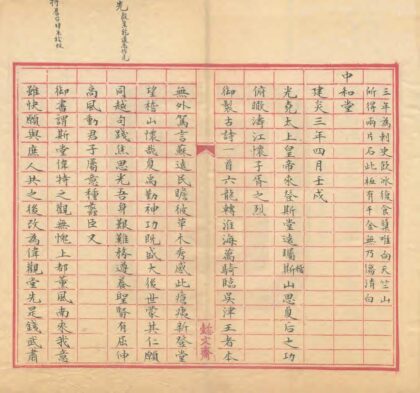 三年為刺史飲冰復食檗唯向天竺山
所得兩片石此極有千金無乃傷清白
中和堂
建炎三年四月壬戌
光堯太上皇帝來登斯堂遠矚稽山思夏后之功
俯瞰濤江懷子胥之烈
御製古詩一首六龍轉淮海萬騎臨吳津王者本
無外駕言蘇遠民瞻彼草木秀感此瘡痍新登堂
望稽山懷哉夏禹勤神功既盛大後世蒙其仁願
同越句踐焦思先吾身艱難務遵養聖賢有屈伸
高風動君子屬意種蠡臣又
御書謂斯堂偉特之觀無愧上都薰風南來我意
雖快願與庶人共之後改為偉觀堂先是錢武肅
懿文齋